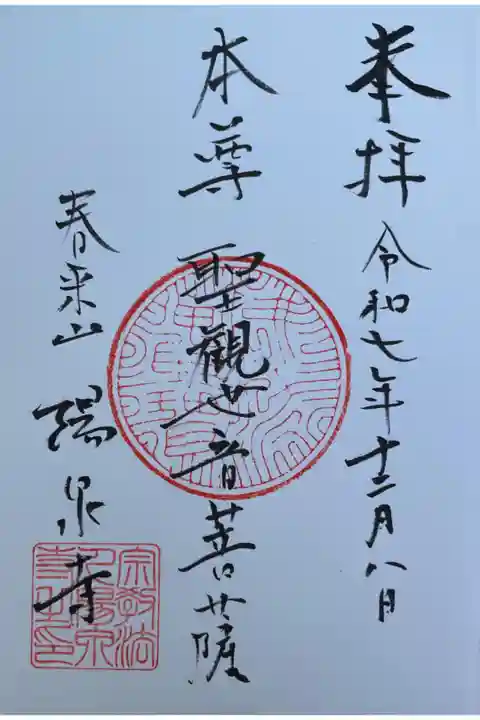 奉拝 令和七年十二月八日
本尊 聖観世音菩薩
春来山 陽泉寺